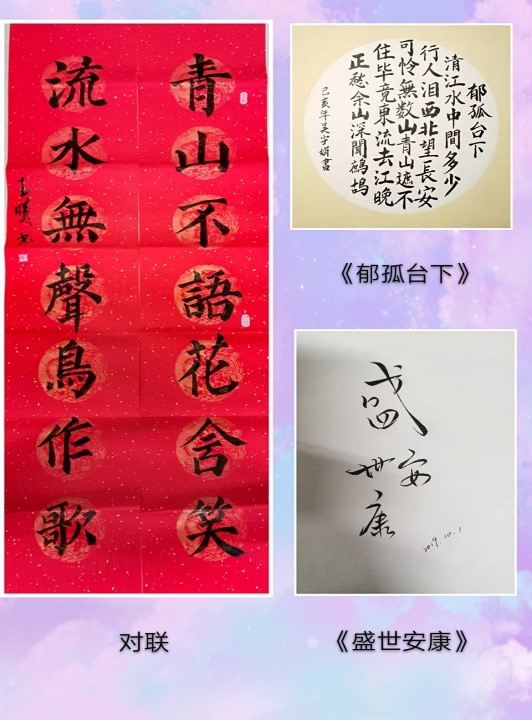 青山不語花含笑
流水無聲鳥作歌
郁孤台下
清江水中間多少
行人泪西北望長安
可怜無数山青山遮不
住毕竟東流去江晚
正愁余山深聞鹧鸪
己亥年吴宇娟書
《郁孤台下》
盛世
安康
2019.10.1
对联
《盛世安康》